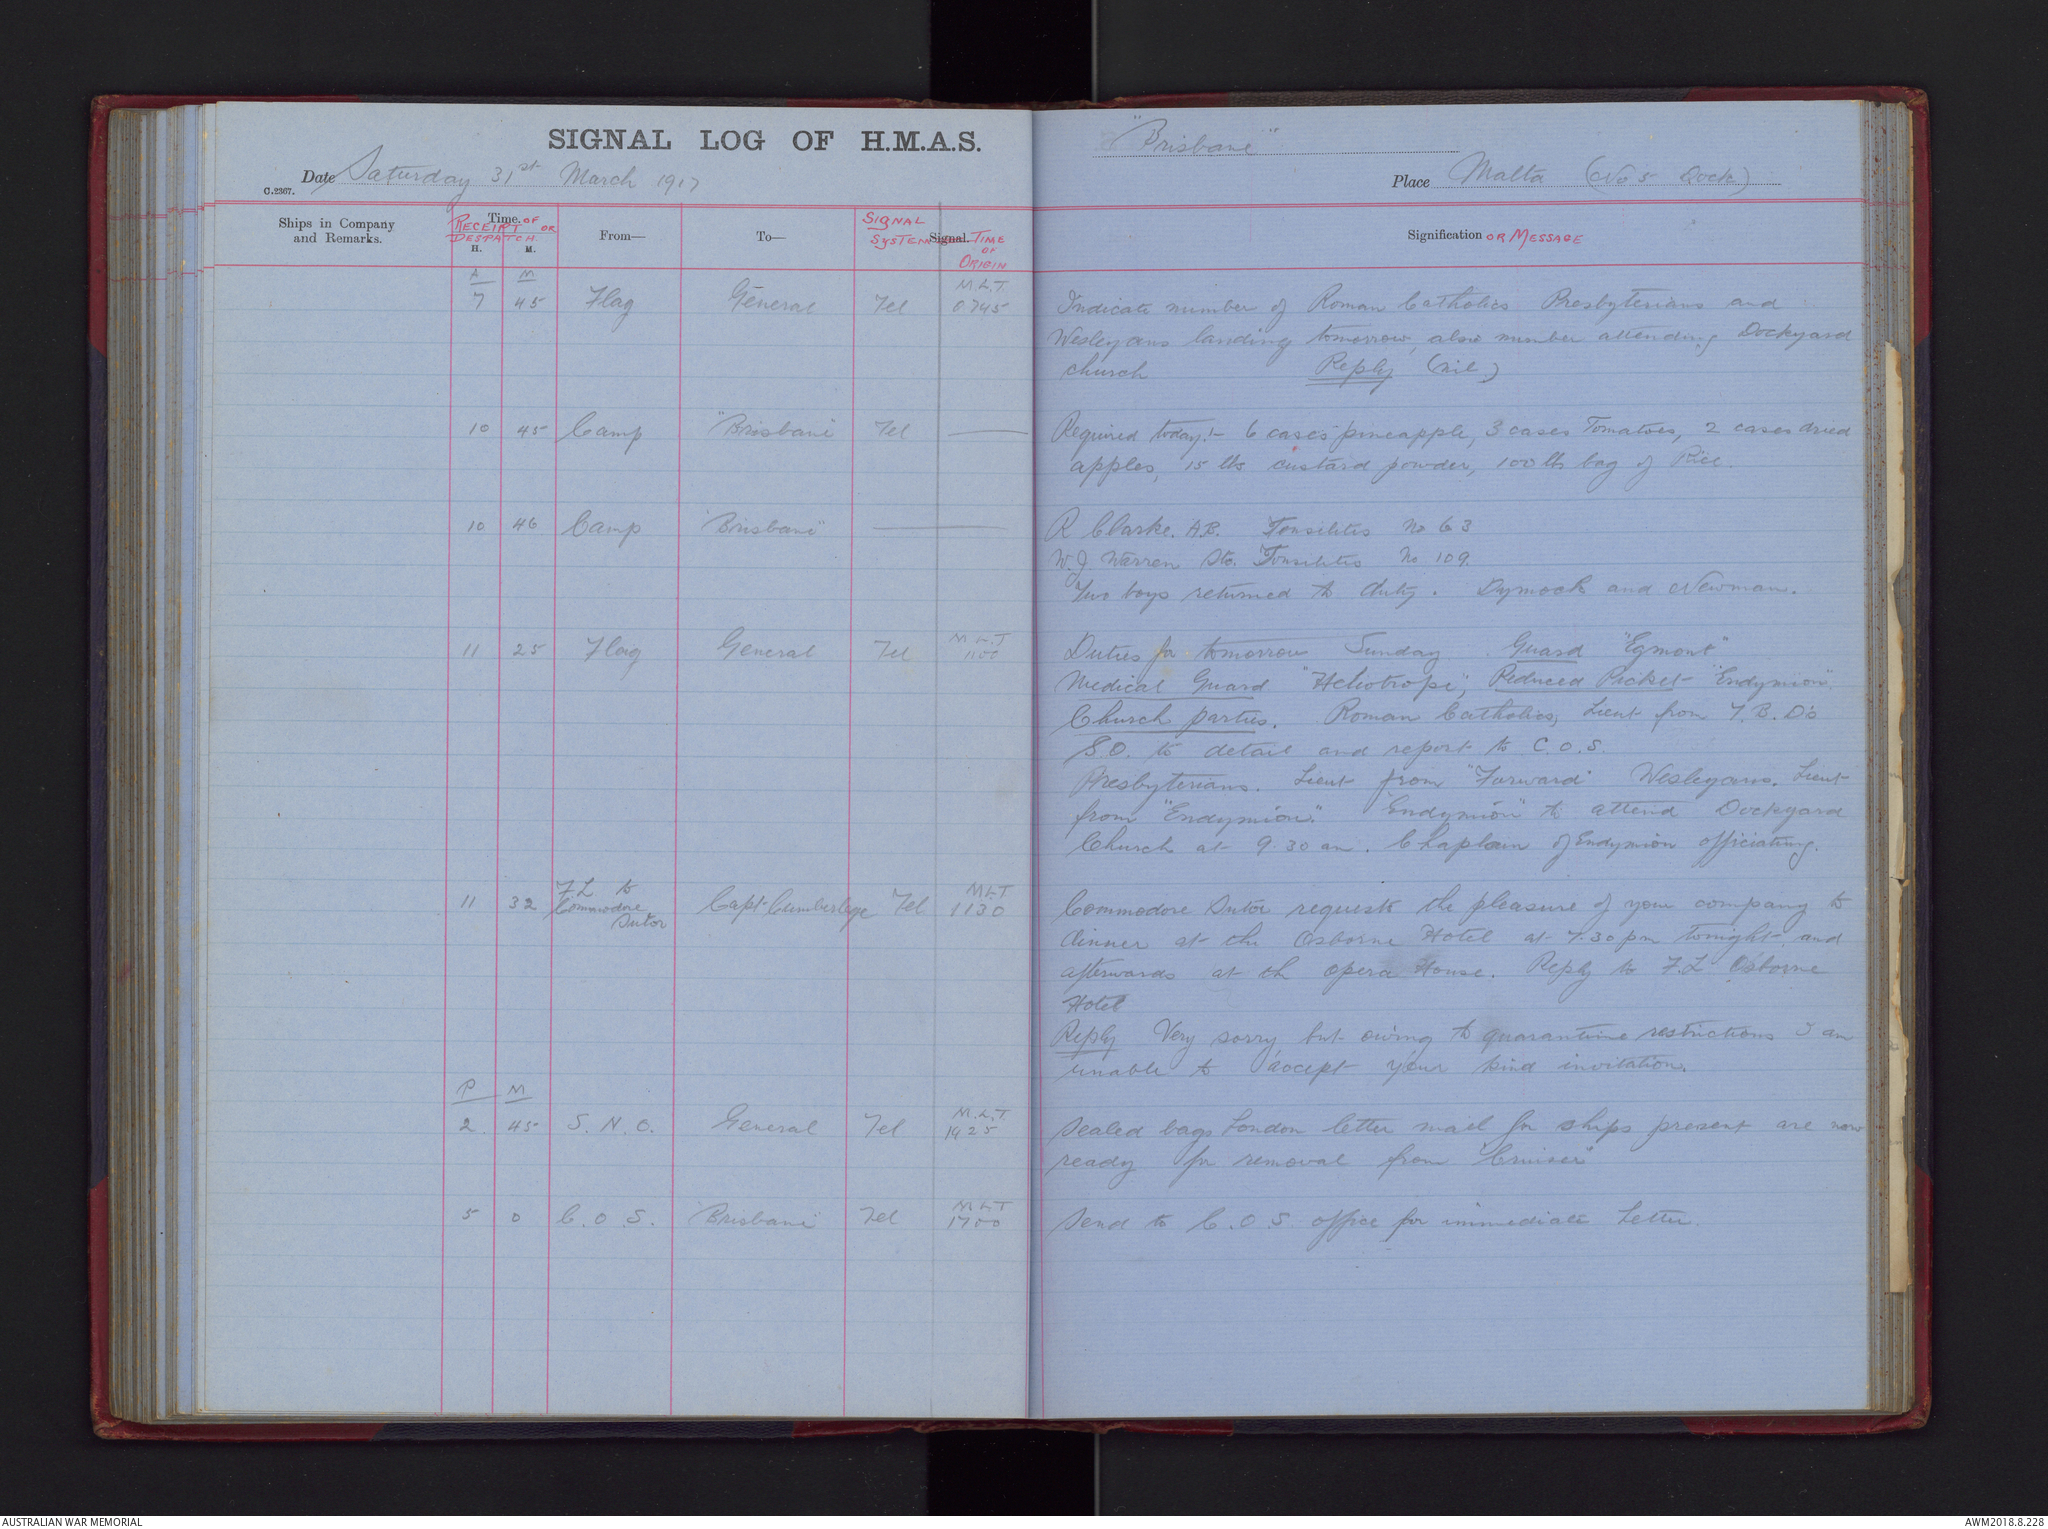 SIGNAL LOG OF H.M.A.S. "Brisbane"
Date Saturday 31st March 1917
Place Malta (No 5 Dock)
C.2367.
Ships in Company
and Remarks.
Time. OF
RECEIPT OR
DESPATCH.
H. M.
From—
To—
SIGNAL
SYSTEM
Signal. TIME
OF
ORIGIN
Signification OR MESSAGE
A M
M.L.T
7 45 Flag General Tel 0745 Indicate number of Roman Catholics Presbyterians and
Wesleyans landing tomorrow, also number attending Dockyard
church Reply (nil)
10 45 Camp "Brisbane" Tel Required today:- 6 cases pineapple, 3 cases Tomatoes, 2 cases dried
apples, 15 lbs custard powder, 100 lb bag of Rice.
10 46 Camp "Brisbane" R Clarke. A.B. Tonsilitis No 63
W.J. Warren Sto. Tonsilitis No 109
Two boys returned to duty. Dymock and Newman.
M.L.T
11 25 Flag General Tel 1100 Duties for tomorrow Sunday. Guard "Egmont"
Medical Guard "Heliotrope", Reduced Picket "Endymion".
Church parties. Roman Catholics, Lieut from T.B.D's
S.O. to detail and report to C.O.S.
Presbyterians. Lieut from "Forward" Wesleyans. Lieut
from "Endymion". "Endymion" to attend Dockyard
Church at 9.30 am. Chaplain of Endymion officiating.
M.L.T
11 32 F.L to Commodore Sutor Capt Cumberlege Tel 1130 Commodore Sutor requests the pleasure of your company to
dinner at the Osborne Hotel at 7.30 pm tonight, and
afterwards at the opera House. Reply to F.L Osborne
Hotel
Reply Very sorry but owing to quarantine restrictions I am
unable to accept your kind invitation.
P M
M.L.T
2 45 S.N.O. General Tel 1425 Sealed bags London letter mail for ships present are now
ready for removal from "Cruiser"
M.L.T
5 0 C.O.S. "Brisbane" Tel 1700 Send to C.O.S. office for immediate Letter.
AUSTRALIAN WAR MEMORIAL
AWM2018.8.228